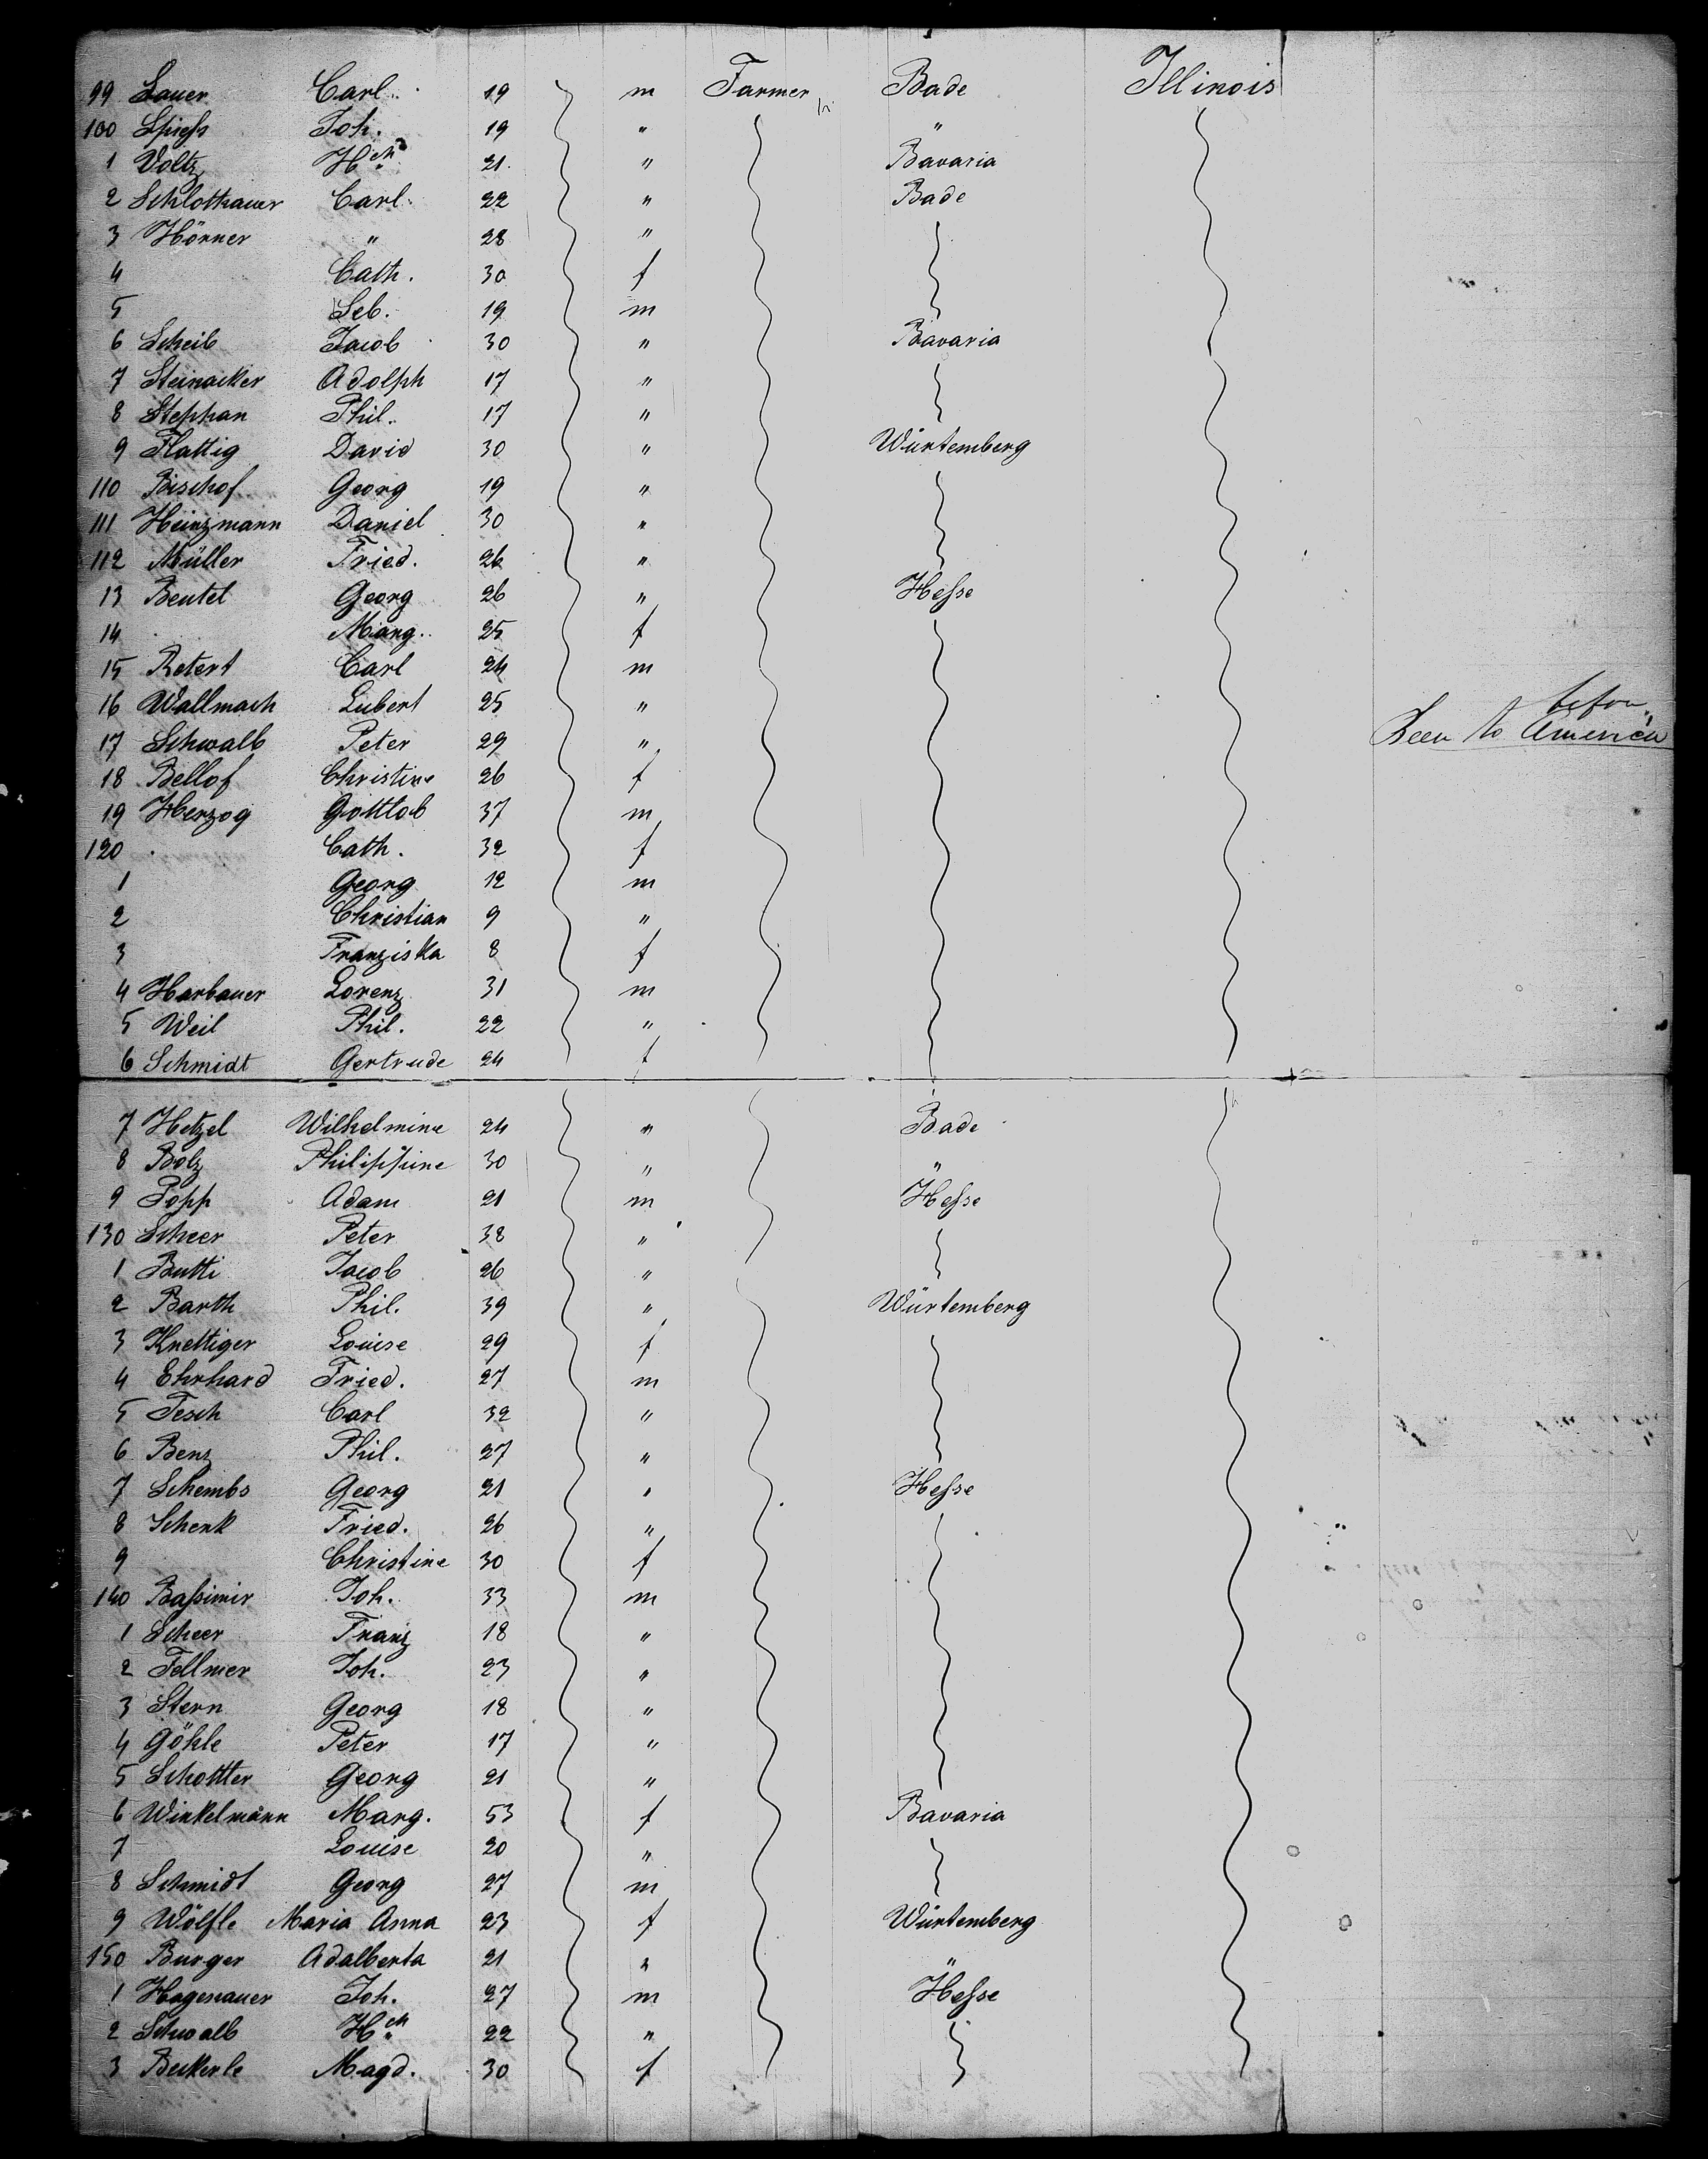 99 Lauer Carl 19 m Farmer Bade Illinois
100 Spieß Joh. 19 " "
1 Voltz Hch 21 " Bavaria
2 Schlothauer Carl 22 " Bade
3 Hörner " 28 "
4 Cath. 30 f
5 Seb. 19 m
6 Scheib Jacob 30 " Bavaria
7 Steinacker Adolph 17 "
8 Stephan Phil. 17 "
9 Flattig David 30 " Würtemberg
110 Bischof Georg 19 "
111 Heinzmann Daniel 30 "
112 Müller Fried. 26 "
13 Beutel Georg 26 " Heße
14 Marg. 25 f
15 Retert Carl 24 m
16 Wallmach Lubert 25 "
before
17 Schwalb Peter 29 " Been to America
18 Bellof Christine 26 f
19 Herzog Gottlob 37 m
120 Cath. 32 f
1 Georg 12 m
2 Christian 9 "
3 Franziska 8 f
4 Harbauer Lorenz 31 m
5 Weil Phil. 22 "
6 Schmidt Gertrude 24 f
7 Hetzel Wilhelmine 24 " Bade
8 Bolz Philippine 30 " "
9 Popp Adam 21 m Heße
130 Scheer Peter 38 "
1 Butti Jacob 26 "
2 Barth Phil. 39 " Würtemberg
3 Knettiger Louise 29 f
4 Ehrhard Fried. 27 m
5 Tesch Carl 32 "
6 Benz Phil. 27 "
7 Schembs Georg 21 " Heße
8 Schenk Fried. 26 "
9 Christine 30 f
140 Baßimir Joh. 33 m
1 Scheer Franz 18 "
2 Fellmer Joh. 23 "
3 Stern Georg 18 "
4 Göhle Peter 17 "
5 Schottler Georg 21 "
6 Winkelmann Marg. 53 f Bavaria
7 Louise 20 "
8 Schmidt Georg 27 m
9 Wölfle Maria Anna 23 f Würtemberg
150 Burger Adalberta 21 " "
1 Hagenauer Joh. 27 m Heße
2 Schwalb Hch 22 "
3 Beckerle Magd. 30 f